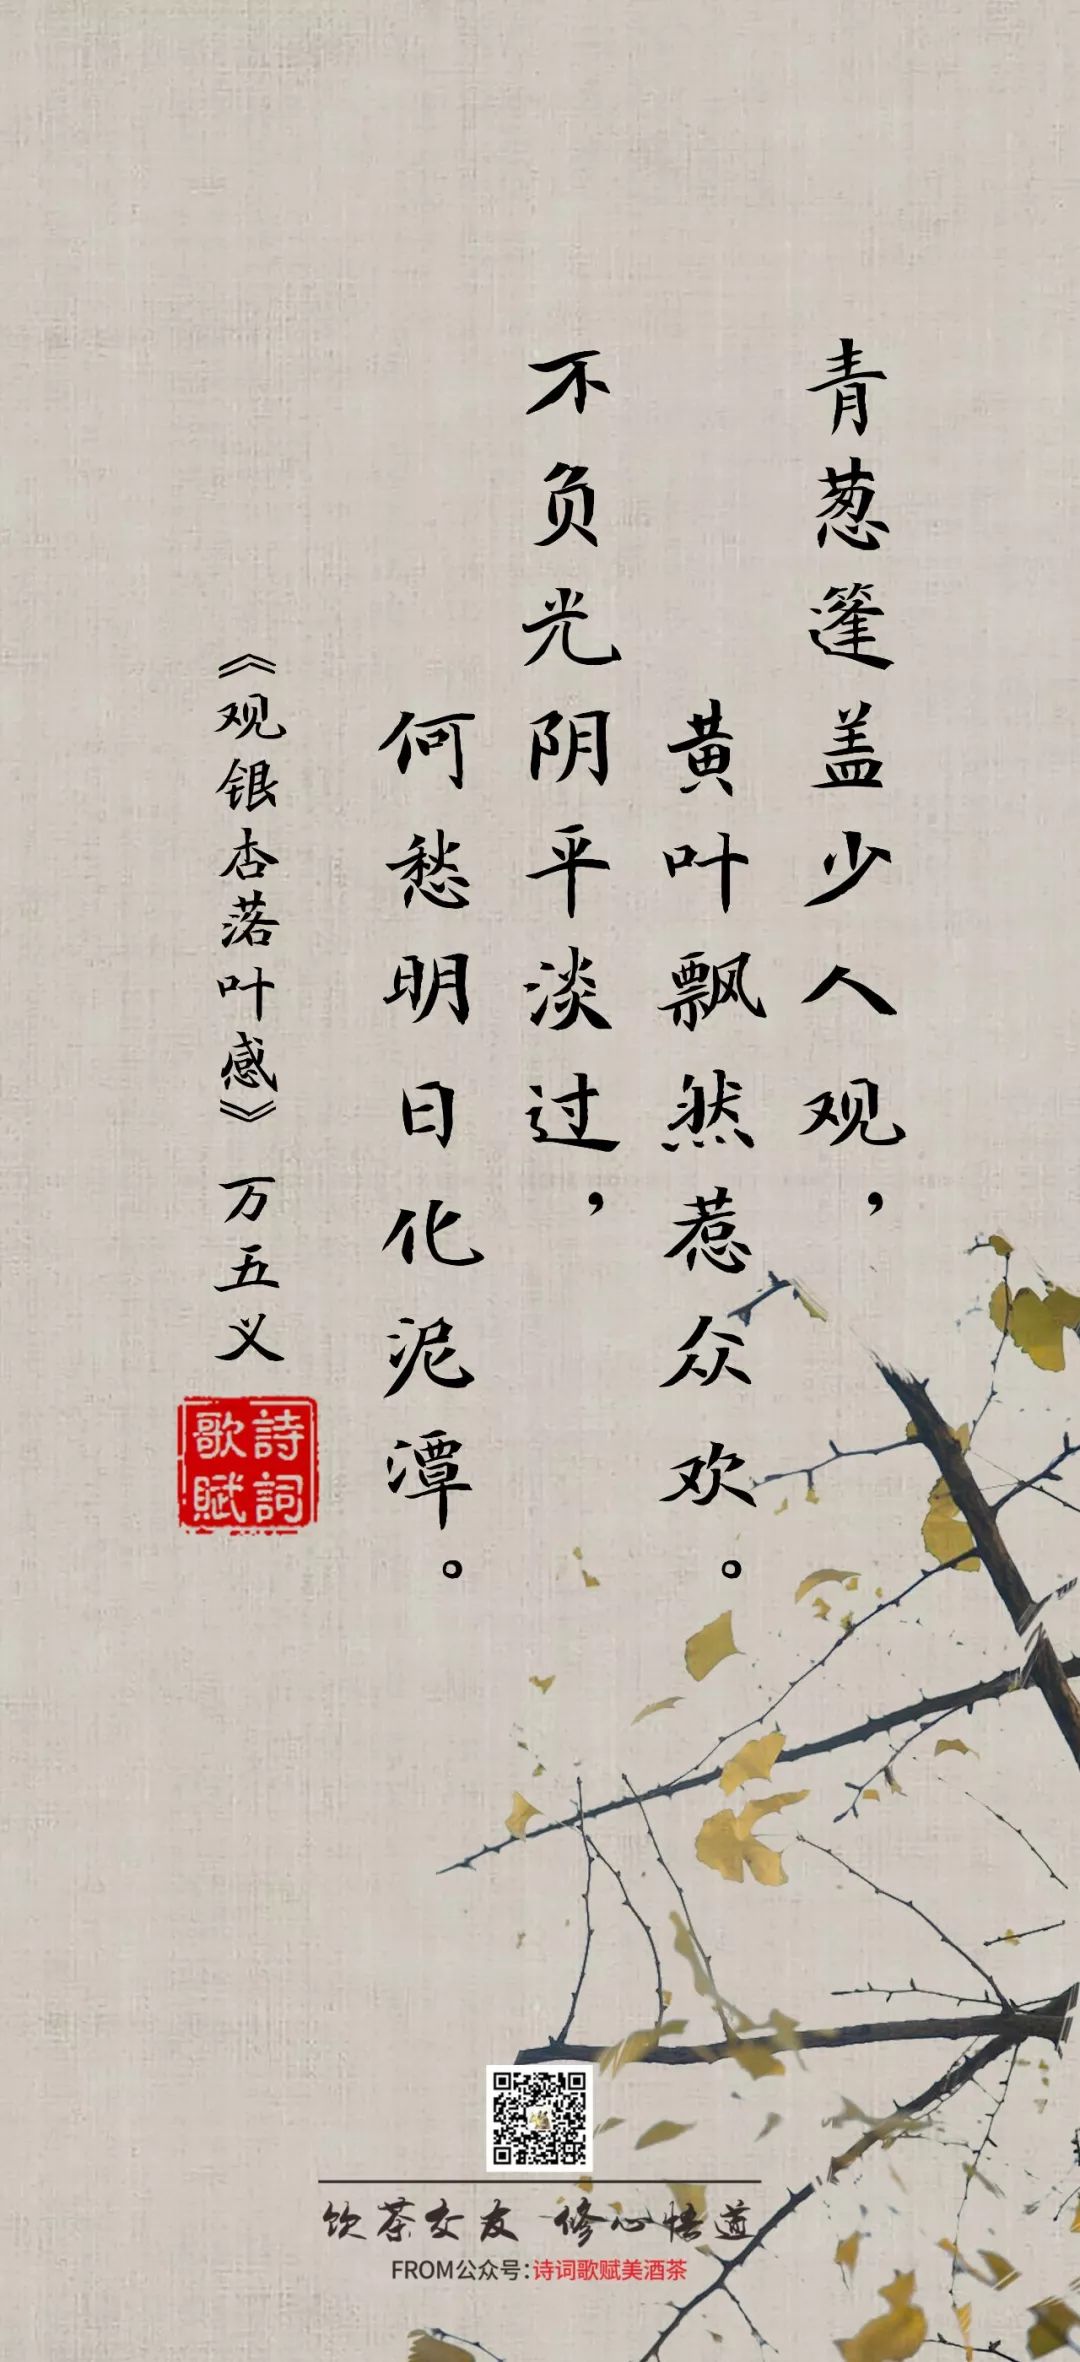 青葱篷盖少人观，
黄叶飘然惹众欢。
不负光阴平淡过，
何愁明日化泥潭。
《观银杏落叶感》万五义
詩詞
歌賦
饮茶交友 修心悟道
FROM公众号：诗词歌赋美酒茶